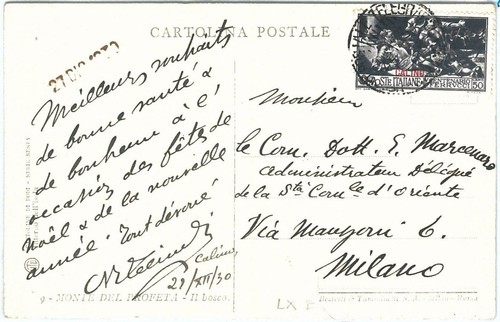 CARTOLINA POSTALE
27 DIC 1930
Meilleurs souhaits
de bonne santé &
de bonheur à l'
occasion des fêtes de
Noël & de la nouvelle
année. Tout dévoué
Calino,
29/XII/30
9 - MONTE DEL PROFETA - Il bosco
CALINO
POSTE ITALIANE
FERRUCCI
50
Monsieur
le Com. Dott. E. Marcenaro
Administrateur Délégué
de la Sté Comle d'Oriente
Via Manzoni 6.
Milano
LX